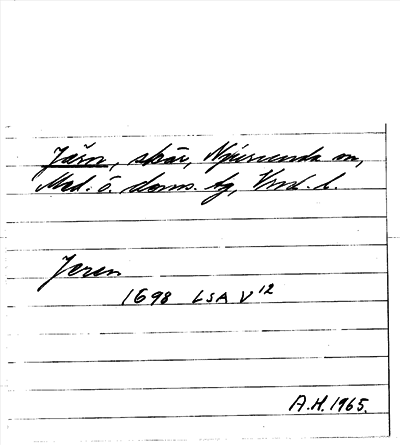 Jären, skär, Njurunda sn,
Med. ö. doms. tg, Vnl. l.
Jeren
1698 LSA V 12
A.H. 1965.